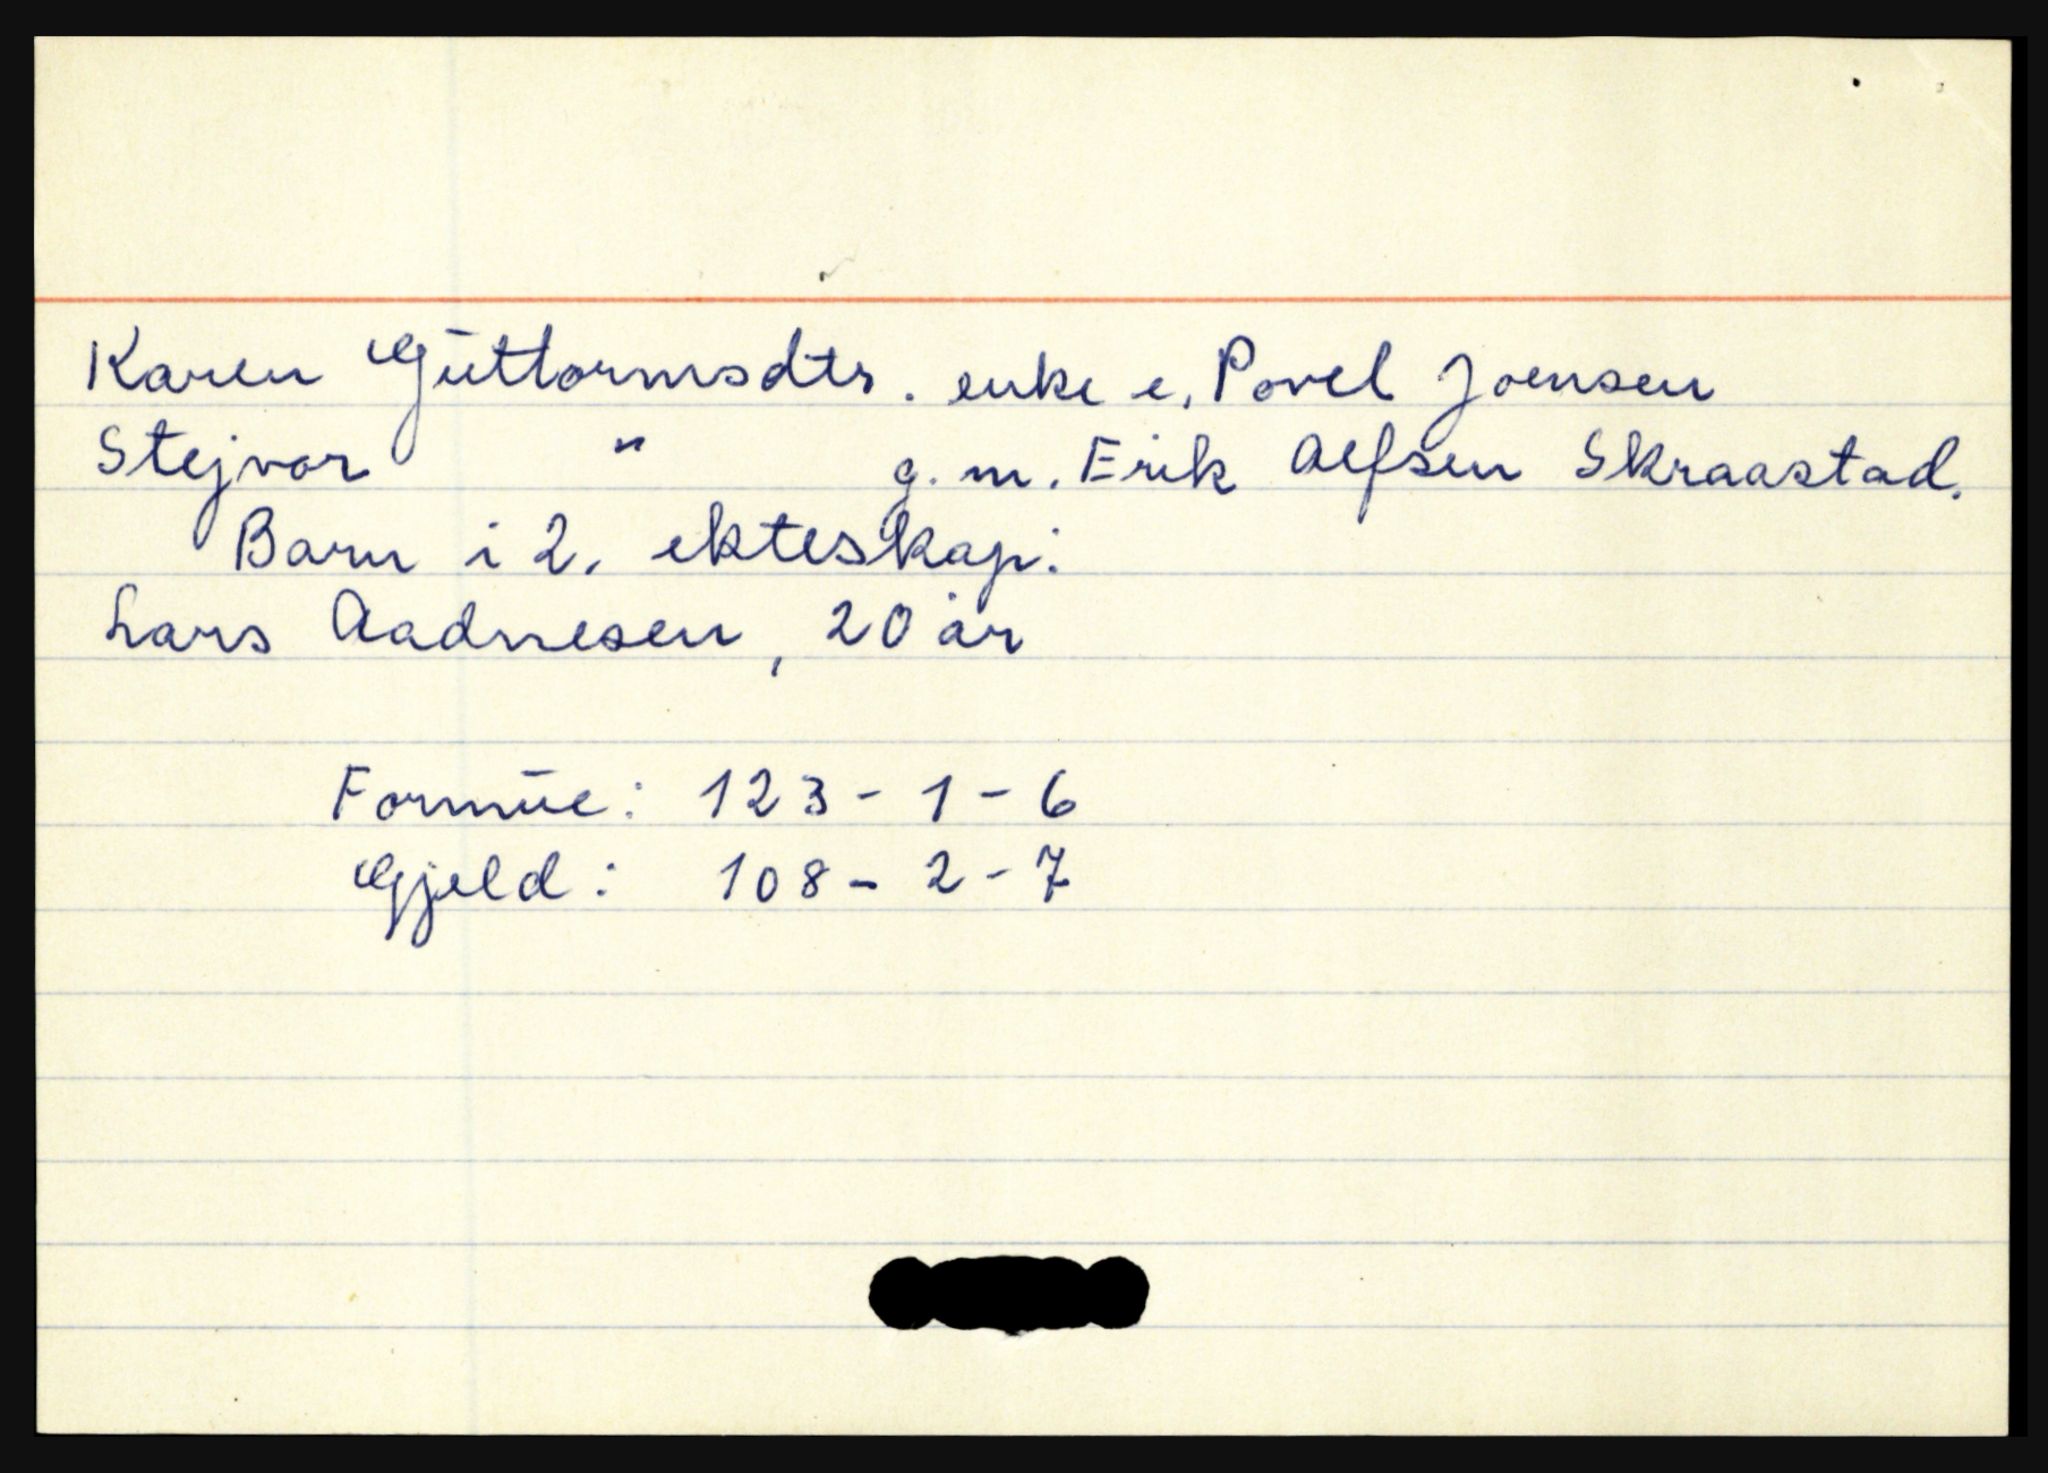 Karen Guttormsdtr. enke e. Povel Joensen
Stejvor " g.m. Erik Alfsen Skraastad.
Barn i 2. ekteskap:
Lars Aadnesen, 20 år
Formue: 123 - 1 - 6
Gjeld: 108 - 2 - 7